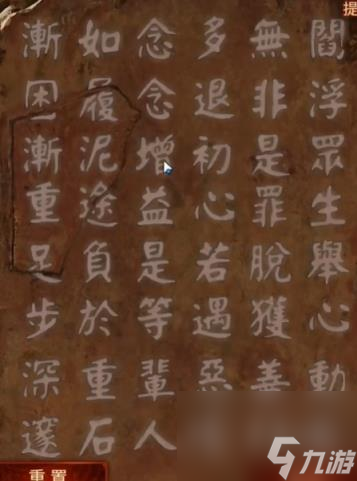 提
閻浮眾生舉心動
無非是罪脫獲善
多退初心若遇惡
念念增益是等輩人
如履泥途負於重石
漸困漸重足步深邃
重置
九游